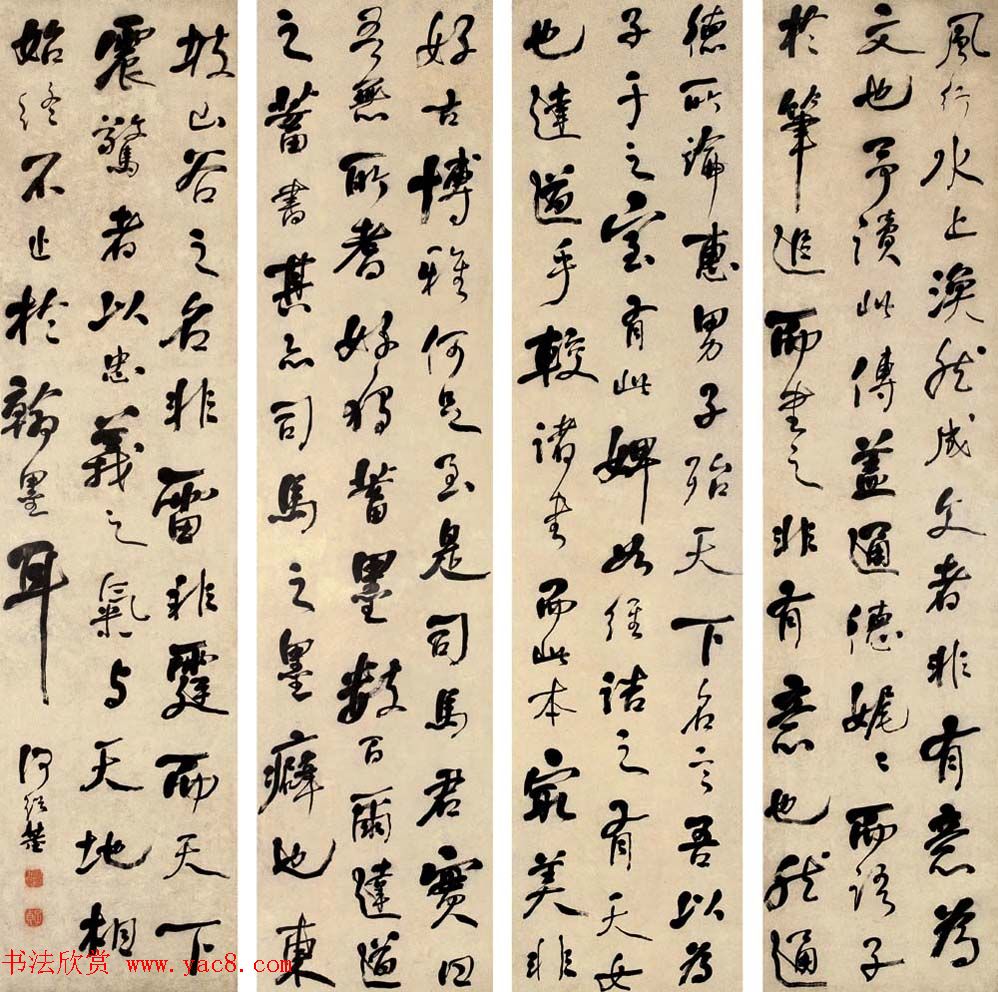 風行水上渙然成文者非有意為
文也予讀此傳蓋通德娓々而語子
於筆追而書之非有意也然通
德所論惠男子殆天下名言吾以為
子于之室有此婢如維詰之有天女
也達道乎較諸書而此本最美非
好古博雅何足至是司馬君實曰
吾無所耆好獨蓄墨數百爾達道
之蓄書其亦司馬之墨癖也東
坡山谷之名非雷非霆而天下
震驚者以忠義之氣與天地相
始終不止於翰墨耳
何紹基
书法欣赏 www.yac8.com